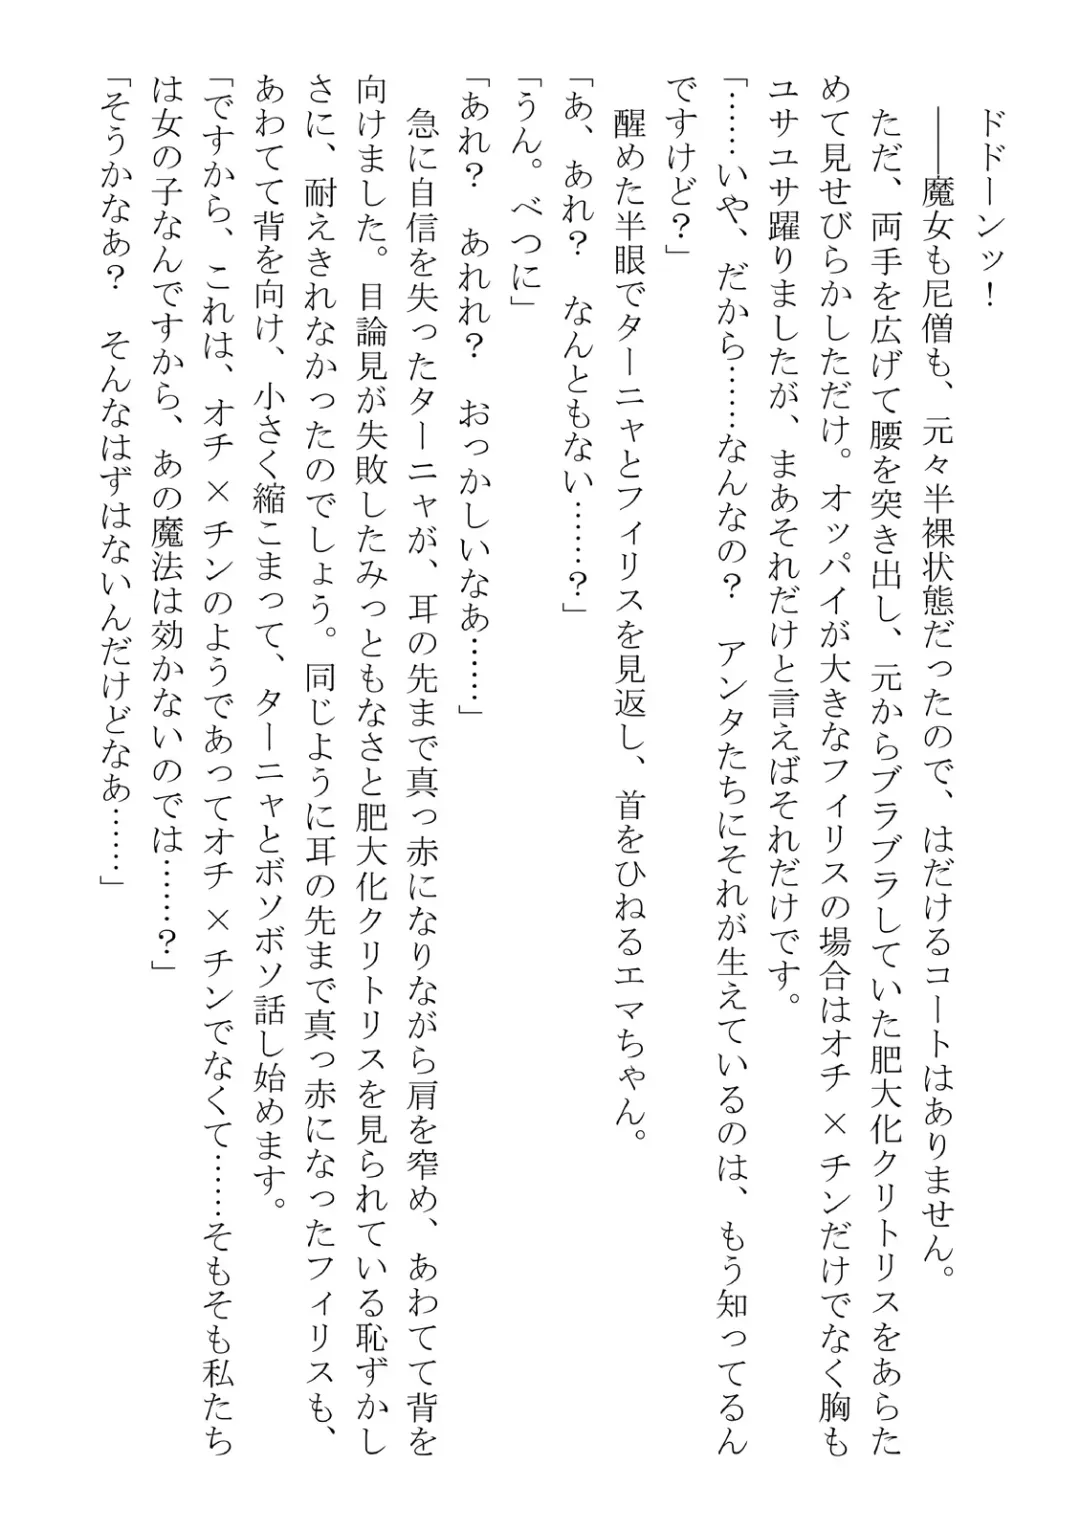 ドドーンッ！
――魔女も尼僧も、元々半裸状態だったので、はだけるコートはありません。
ただ、両手を広げて腰を突き出し、元からブラブラしていた肥大化クリトリスをあらた
めて見せびらかしただけ。オッパイが大きなフィリスの場合はオチ×チンだけでなく胸も
ユサユサ躍りましたが、まあそれだけと言えばそれだけです。
「……いや、だから……なんなの？　アンタたちにそれが生えているのは、もう知ってるん
ですけど？」
醒めた半眼でターニャとフィリスを見返し、首をひねるエマちゃん。
「あ、あれ？　なんともない……？」
「うん。べつに」
「あれ？　あれれ？　おっかしいなあ……」
急に自信を失ったターニャが、耳の先まで真っ赤になりながら肩を窄め、あわてて背を
向けました。目論見が失敗したみっともなさと肥大化クリトリスを見られている恥ずかし
さに、耐えきれなかったのでしょう。同じように耳の先まで真っ赤になったフィリスも、
あわてて背を向け、小さく縮こまって、ターニャとボソボソ話し始めます。
「ですから、これは、オチ×チンのようであってオチ×チンでなくて……そもそも私たち
は女の子なんですから、あの魔法は効かないのでは……？」
「そうかなあ？　そんなはずはないんだけどなあ……」